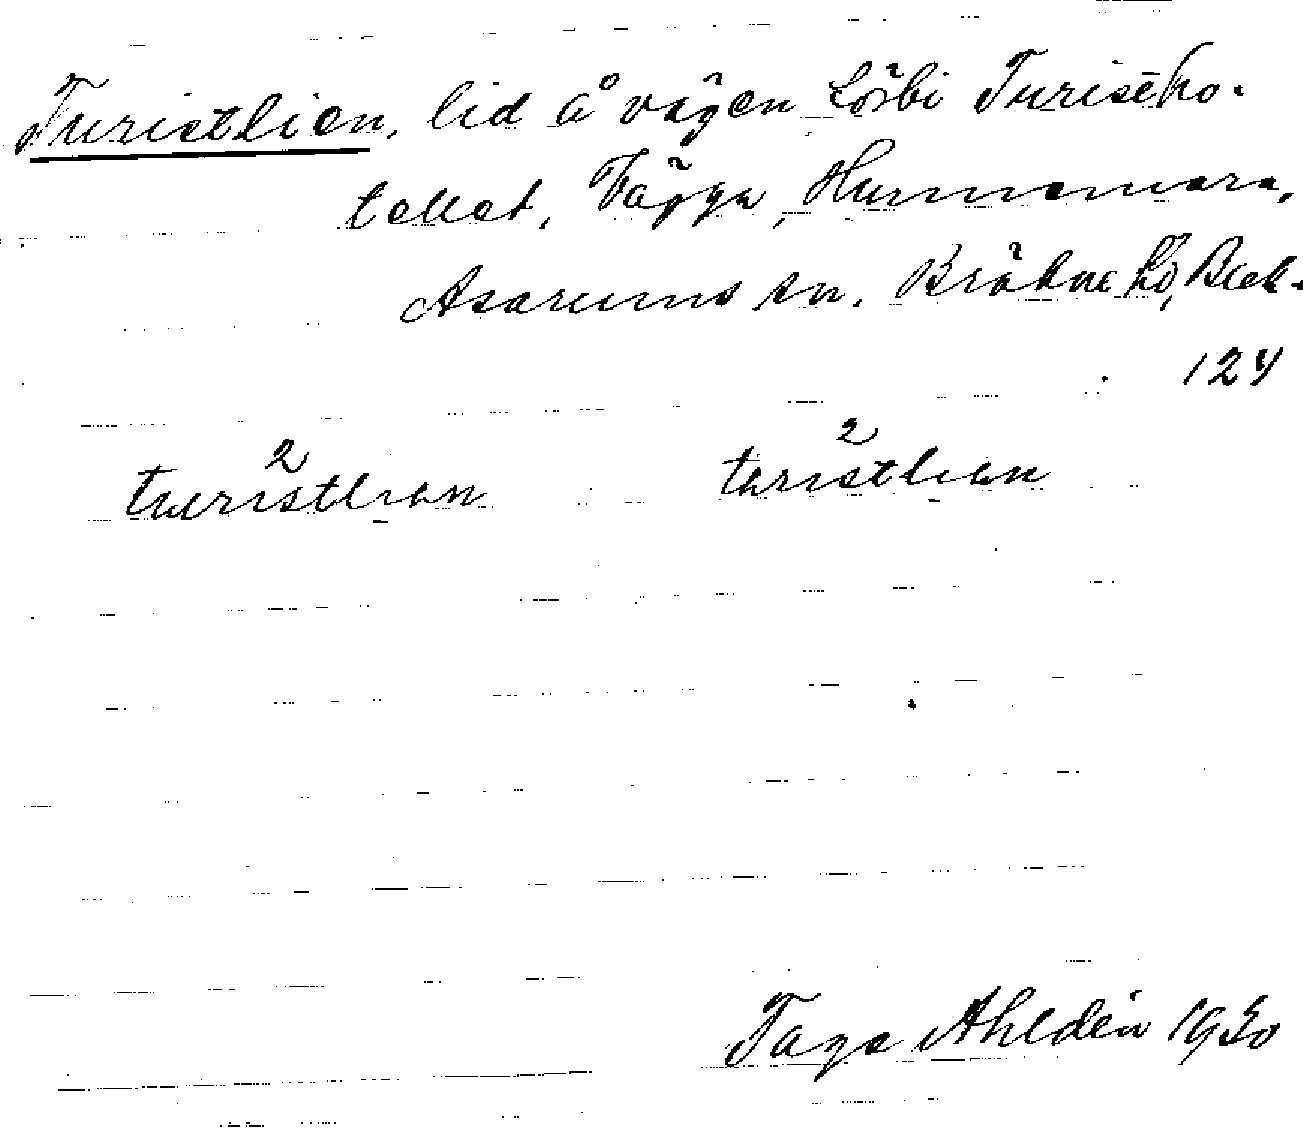 Turistlien, lid å vägen förbi Turistho-
tellet, Vägga, Hunnemara,
Asarums sn. Bräkne hd, Blek.
124
turistlian turistlian
Tage Ahldén 1930